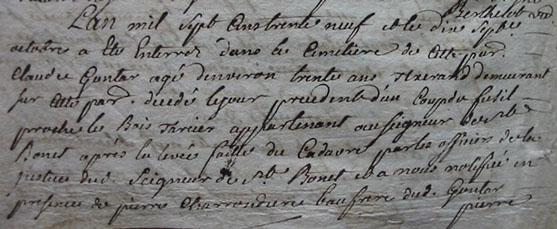 Berthelot
L'an mil sept cens trente neuf et le dix sept
octobre a ete enterrez dans le cimetiere de cette par.
Claude Gontar agé d'environ trente ans demeurant
sur cette par. decedé le jour precedent d'un coup de fusil
proche les Bois appartenant au seigneur de St.
Bonet après la levée faitte du Cadavre par les officiers de la
justice dud. Seigneur de St. Bonet et a nous notifiée en
presence de pierre Charrondiere beaufrere dud. Gontar
pierre